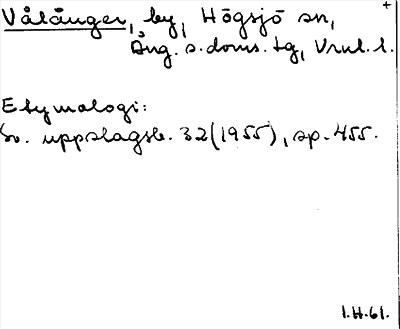 +
Vålånger, by, Högsjö sn,
Ång. s. doms. tg, Vnl. l.
Etymologi:
Sv. uppslagsb. 32 (1955), sp. 455.
1.H.61.